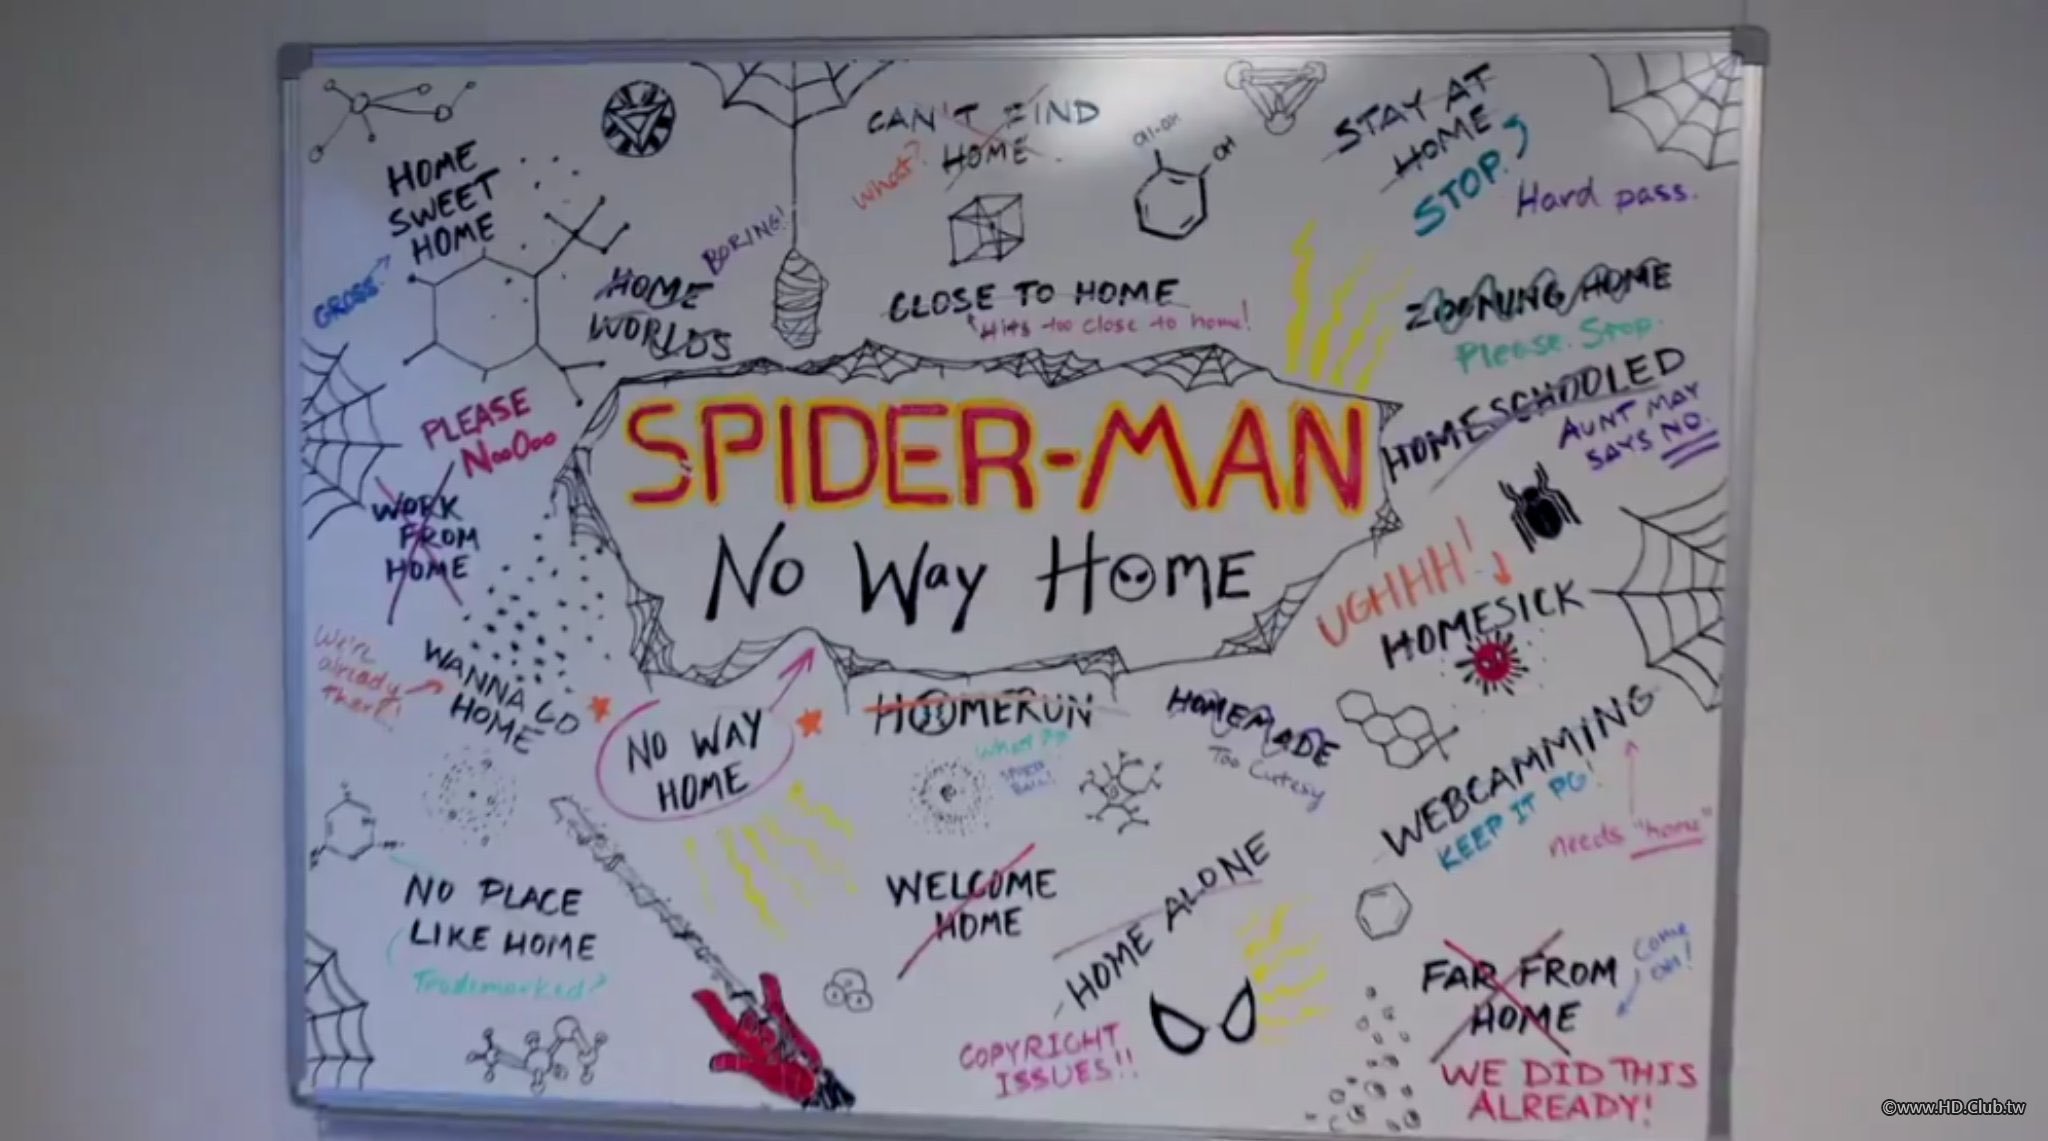 HOME
SWEET
HOME
GROSS.
HOME
WORLDS
BORING!
CAN'T FIND
HOME
What?
OH
CLOSE TO HOME
Hits too close to home!
STAY AT
HOME
STOP.
Hard pass.
ZOOMING HOME
Please. Stop.
HOMESCHOOLED
AUNT MAY
SAYS NO.
PLEASE
NooOoo
WORK
FROM
HOME
SPIDER-MAN
No Way HOME
UGHHH!
HOMESICK
We're
already
there!
WANNA GO
HOME
NO WAY
HOME
HOOMERUN
What??
HOMEMADE
Too Cutesy
WEBCAMMING
KEEP IT PG!
needs "home"
NO PLACE
LIKE HOME
Trademarked?
WELCOME
HOME
HOME ALONE
COPYRIGHT
ISSUES!!
FAR FROM
HOME
Come
on!
WE DID THIS
ALREADY!
©www.HD.Club.tw